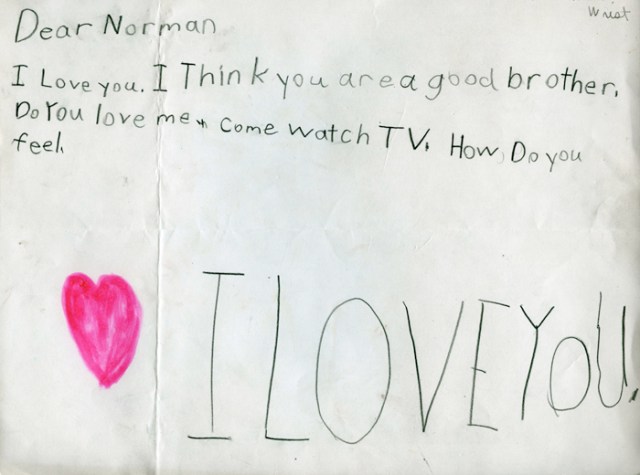 Wrist
Dear Norman
I Love you. I Think you are a good brother.
Do You love me. Come watch TV. How Do you
feel.
I LOVE YOU.